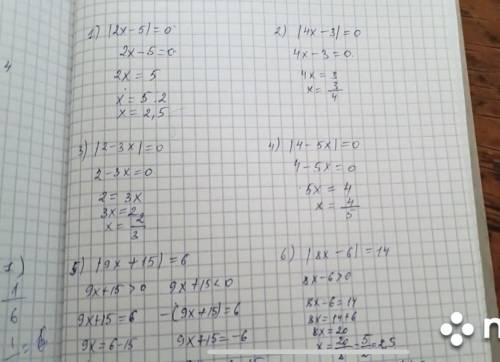 1) |2x-5|=0
2x-5=0
2x = 5
x = 5:2
x = 2,5
2) |4x-3|=0
4x-3=0
4x=3
x= 3/4
3) |2-3x|=0
2-3x=0
2= 3x
3x=2
x= 2/3
4) |4-5x|=0
4-5x=0
5x=4
x= 4/5
5) |9x+15|=6
9x+15>0
9x+15=6
9x=6-15
9x+15<0
-(9x+15)=6
9x+15=-6
6) |8x-6|=14
8x-6>0
8x-6=14
8x=14+6
8x=20